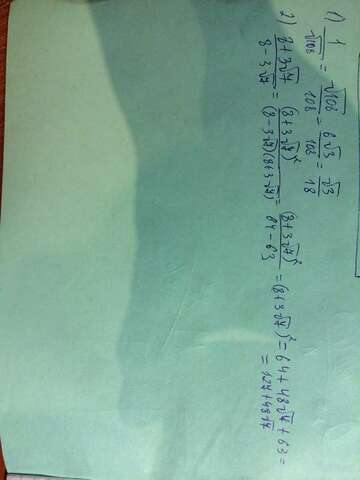 1) 1/√108 = √108/108 = 6√3/108 = √3/18
2) 8+3√7/8-3√7 = (8+3√7)²/(8-3√7)(8+3√7) = (8+3√7)²/64-63 = (8+3√7)² = 64+48√7+63=
= 127+48√7